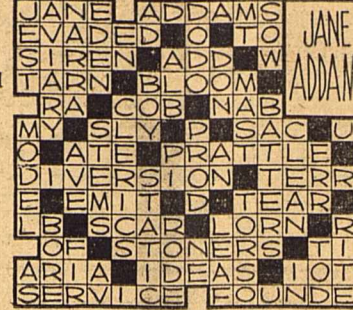 JANE ADDAMS
EVADED O TO
SIREN ADD W
TARN BLOOM
RA COB NAB
MY SLY P SAC U
O ATE PRATTLE
DIVERSION TERR
E EMIT D TEAR
LB SCAR LORN R
OF STONERS TI
ARIA IDEAS IOT
SERVICE FOUNDE
JANE
ADDAM